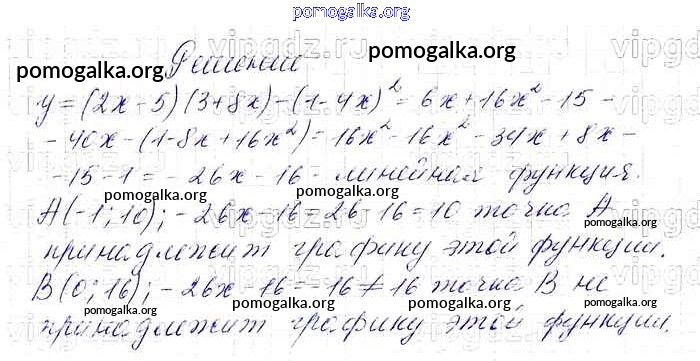 pomogalka.org
Решение
y=(2x-5)(3+8x)-(1-4x)²=6x+16x²-15-
-40x-(1-8x+16x²)=16x²-16x²-34x+8x-
-15-1=-26x-16 - линейная функция.
A(-1;10); -26x-16=26-16=10 точка A
принадлежит графику этой функции.
B(0;16); -26x-16=-16≠16 точка B не
принадлежит графику этой функции.
pomogalka.org
pomogalka.org
pomogalka.org
pomogalka.org
pomogalka.org
pomogalka.org
pomogalka.org
pomogalka.org
pomogalka.org
pomogalka.org
pomogalka.org